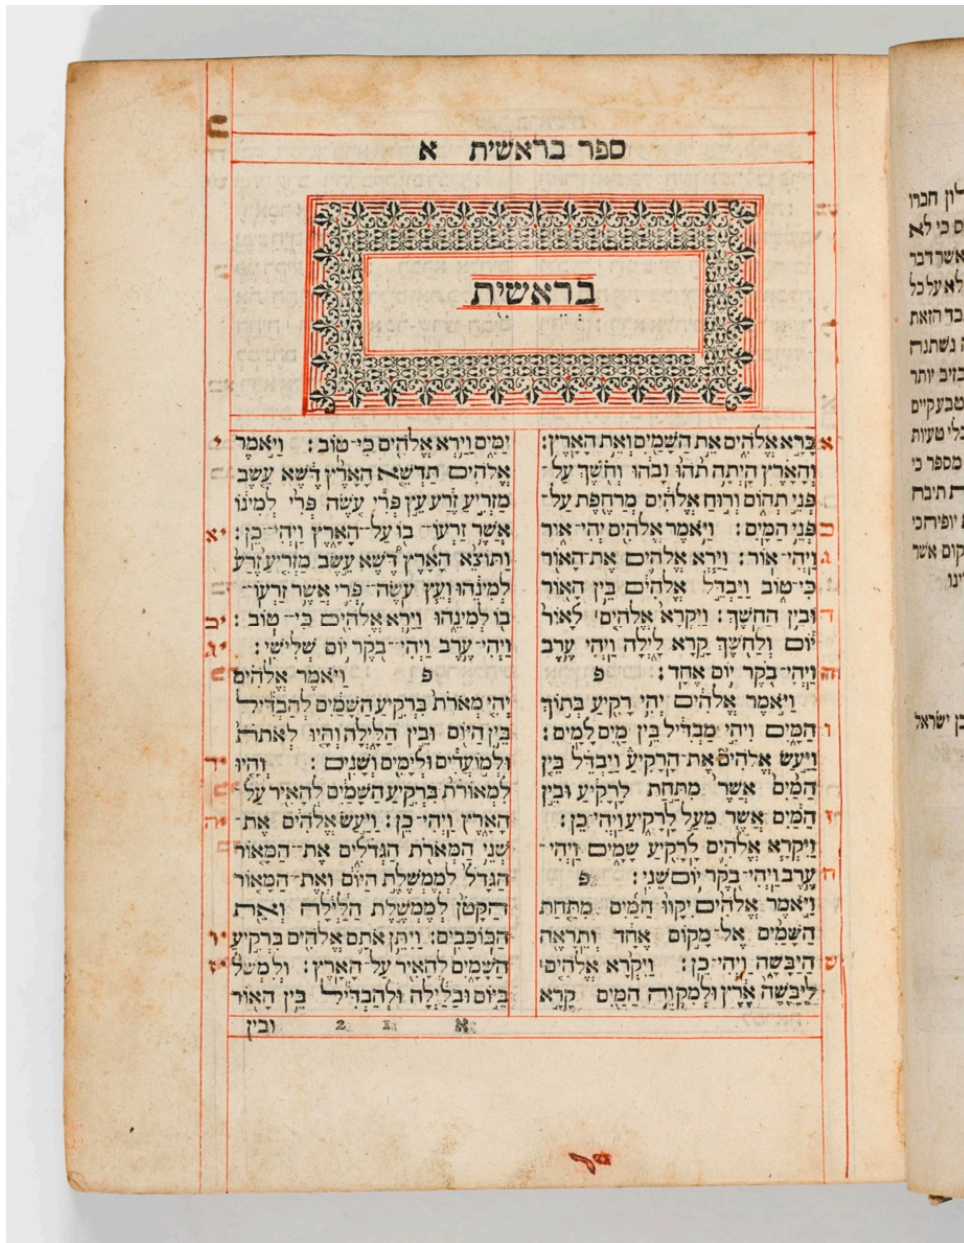 ספר בראשית א
בְּרֵאשִׁית
א
בָּרָא אֱלֹהִים אֵת הַשָּׁמַיִם וְאֵת הָאָרֶץ:
וְהָאָרֶץ הָיְתָה תֹהוּ וָבֹהוּ וְחֹשֶׁךְ עַל־
פְּנֵי תְהוֹם וְרוּחַ אֱלֹהִים מְרַחֶפֶת עַל־
ב
פְּנֵי הַמָּיִם: וַיֹּאמֶר אֱלֹהִים יְהִי־אוֹר
ג
וַיְהִי־אוֹר: וַיַּרְא אֱלֹהִים אֶת־הָאוֹר
כִּי־טוֹב וַיַּבְדֵּל אֱלֹהִים בֵּין הָאוֹר
ד
וּבֵין הַחֹשֶׁךְ: וַיִּקְרָא אֱלֹהִים לָאוֹר
יוֹם וְלַחֹשֶׁךְ קָרָא לָיְלָה וַיְהִי עֶרֶב
ה
וַיְהִי־בֹקֶר יוֹם אֶחָד: פ
וַיֹּאמֶר אֱלֹהִים יְהִי רָקִיעַ בְּתוֹךְ
ו
הַמָּיִם וִיהִי מַבְדִּיל בֵּין מַיִם לָמָיִם:
וַיַּעַשׂ אֱלֹהִים אֶת־הָרָקִיעַ וַיַּבְדֵּל בֵּין
הַמַּיִם אֲשֶׁר מִתַּחַת לָרָקִיעַ וּבֵין
ז
הַמַּיִם אֲשֶׁר מֵעַל לָרָקִיעַ וַיְהִי־כֵן:
וַיִּקְרָא אֱלֹהִים לָרָקִיעַ שָׁמָיִם וַיְהִי־
ח
עֶרֶב וַיְהִי־בֹקֶר יוֹם שֵׁנִי: פ
וַיֹּאמֶר אֱלֹהִים יִקָּווּ הַמַּיִם מִתַּחַת
הַשָּׁמַיִם אֶל־מָקוֹם אֶחָד וְתֵרָאֶה
הַיַּבָּשָׁה וַיְהִי־כֵן: וַיִּקְרָא אֱלֹהִים
לַיַּבָּשָׁה אֶרֶץ וּלְמִקְוֵה הַמַּיִם קָרָא
י
יַמִּים וַיַּרְא אֱלֹהִים כִּי־טוֹב: וַיֹּאמֶר
אֱלֹהִים תַּדְשֵׁא הָאָרֶץ דֶּשֶׁא עֵשֶׂב
מַזְרִיעַ זֶרַע עֵץ פְּרִי עֹשֶׂה פְּרִי לְמִינוֹ
יא
אֲשֶׁר זַרְעוֹ־בוֹ עַל־הָאָרֶץ וַיְהִי־כֵן:
וַתּוֹצֵא הָאָרֶץ דֶּשֶׁא עֵשֶׂב מַזְרִיעַ זֶרַע
לְמִינֵהוּ וְעֵץ עֹשֶׂה־פְּרִי אֲשֶׁר זַרְעוֹ־
יב
בוֹ לְמִינֵהוּ וַיַּרְא אֱלֹהִים כִּי־טוֹב:
יג
וַיְהִי־עֶרֶב וַיְהִי־בֹקֶר יוֹם שְׁלִישִׁי:
פ וַיֹּאמֶר אֱלֹהִים
יְהִי מְאֹרֹת בִּרְקִיעַ הַשָּׁמַיִם לְהַבְדִּיל
בֵּין הַיּוֹם וּבֵין הַלָּיְלָה וְהָיוּ לְאֹתֹת
יד
וּלְמוֹעֲדִים וּלְיָמִים וְשָׁנִים: וְהָיוּ
לִמְאוֹרֹת בִּרְקִיעַ הַשָּׁמַיִם לְהָאִיר עַל־
יה
הָאָרֶץ וַיְהִי־כֵן: וַיַּעַשׂ אֱלֹהִים אֶת־
שְׁנֵי הַמְּאֹרֹת הַגְּדֹלִים אֶת־הַמָּאוֹר
הַגָּדֹל לְמֶמְשֶׁלֶת הַיּוֹם וְאֶת־הַמָּאוֹר
הַקָּטֹן לְמֶמְשֶׁלֶת הַלַּיְלָה וְאֵת
יו
הַכּוֹכָבִים: וַיִּתֵּן אֹתָם אֱלֹהִים בִּרְקִיעַ
יז
הַשָּׁמָיִם לְהָאִיר עַל־הָאָרֶץ: וְלִמְשֹׁל
בַּיּוֹם וּבַלַּיְלָה וּלְהַבְדִּיל בֵּין הָאוֹר
א 1 2 ובין
חברו
כי לא
אשר דבר
לא על כל
הזאת
נשתנה
יותר
טבעקיים
בלי טעות
מספר כי
תיבת
קום אשר
בן ישראל